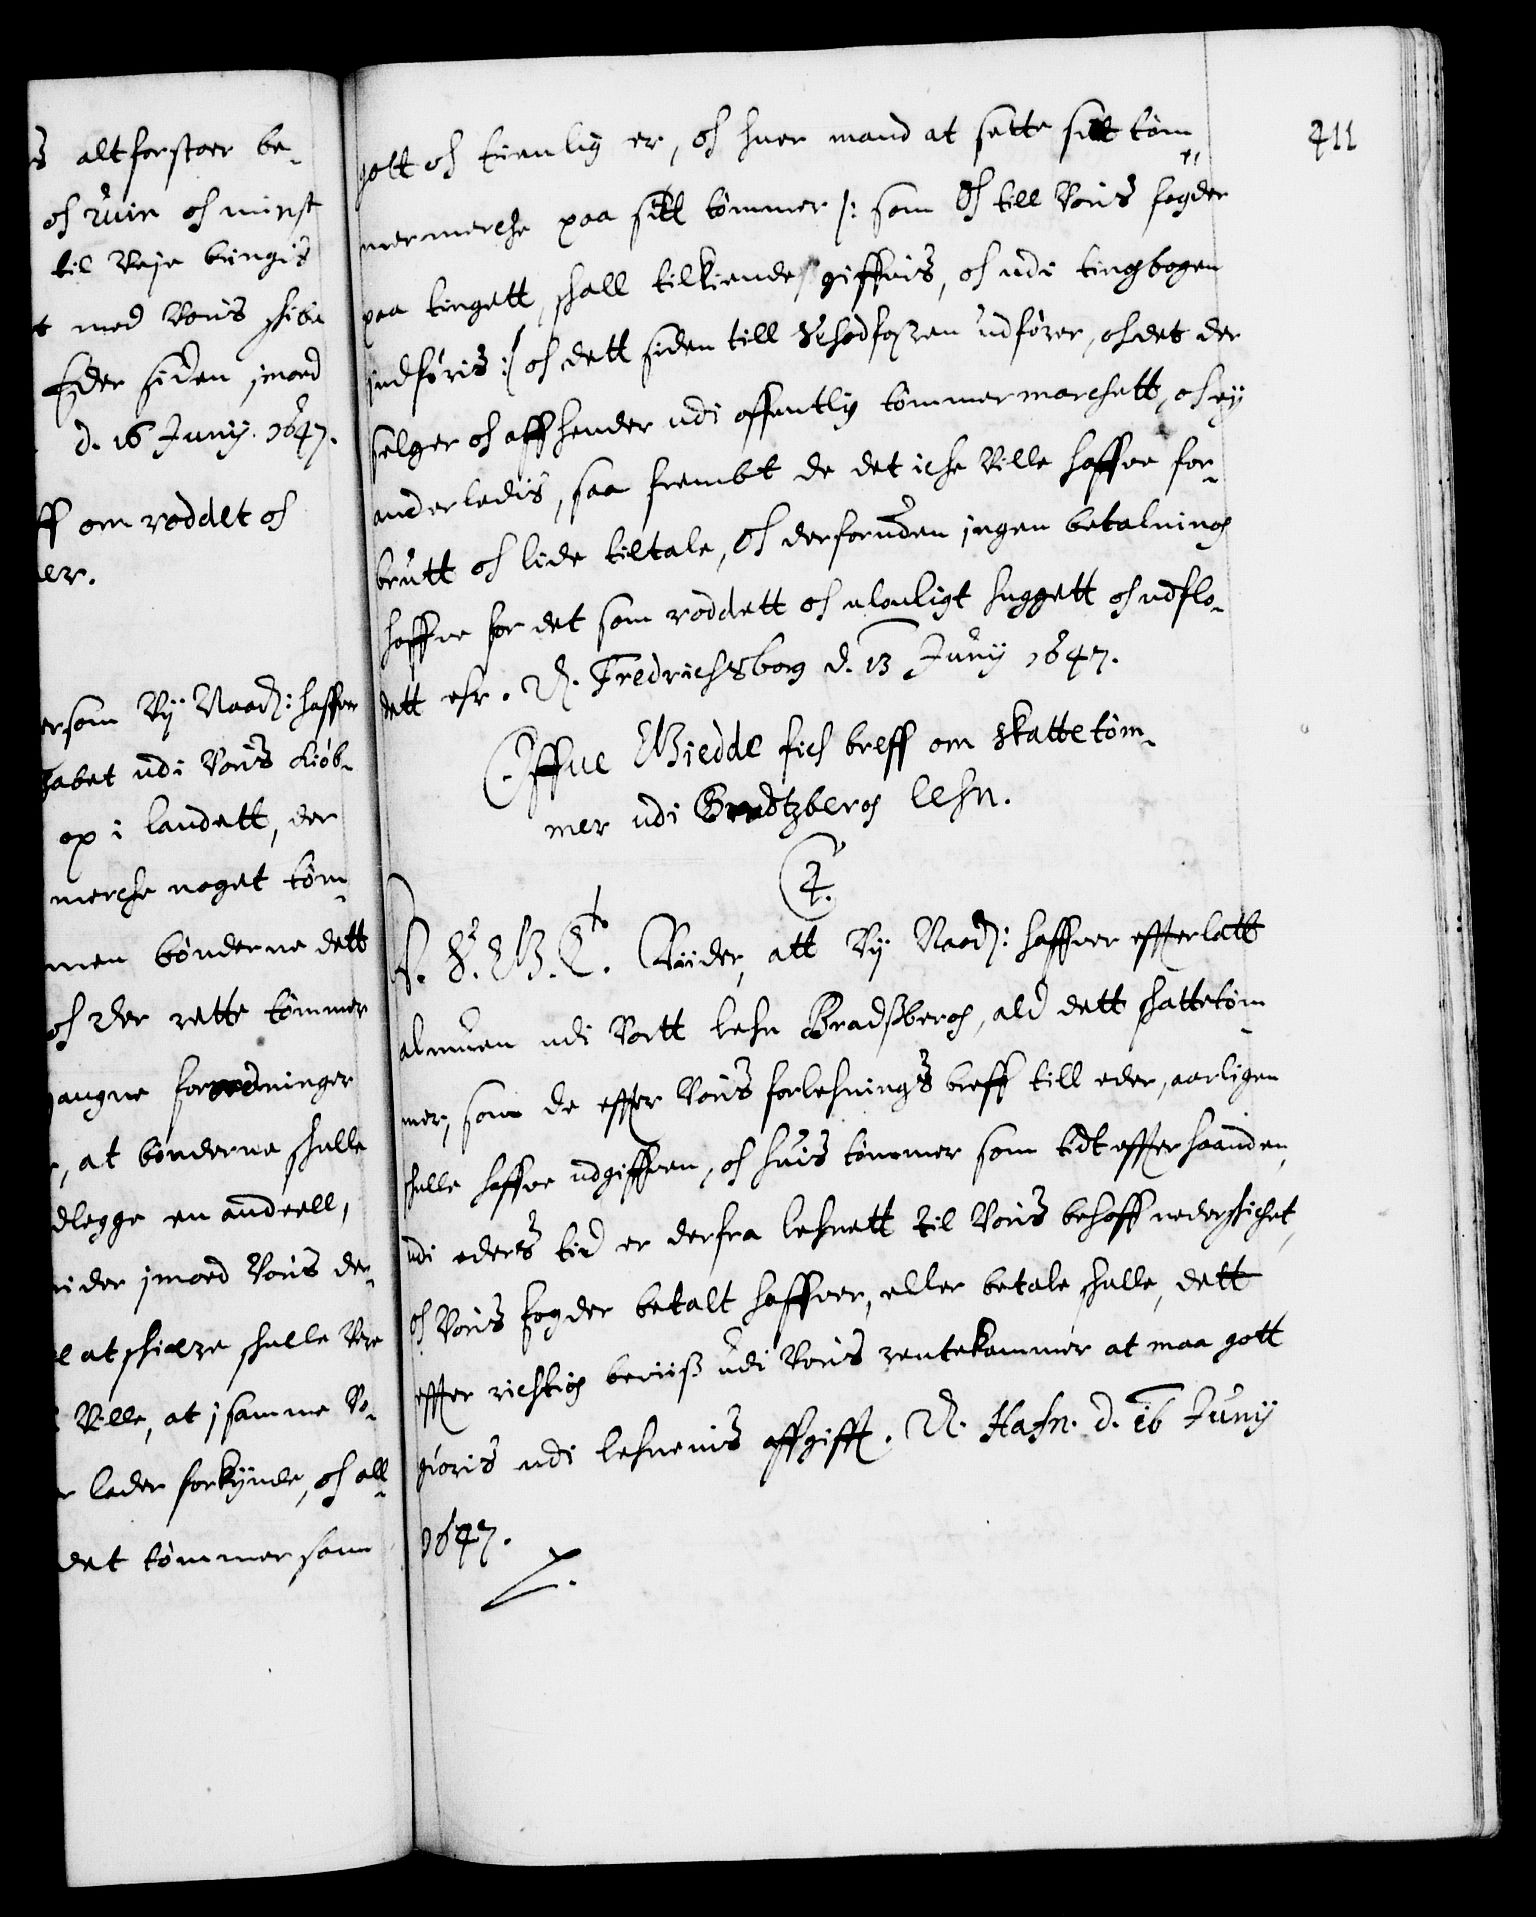 altforstaer be-
och Ruin och minst
til Veje bringis
med Voris schibe
Eder siden imoed
d. 16 Junij. 1647.
om raddet och
ersom Vij Naad: haffver
udi Voris Kiøb-
op i landett, der
merche noget tøm-
men bønderne dett
och der rette tømmer
forordninger
at bønderne schulle
dlegge en andeell,
imoed Voris der-
at schierre schulle Vere
Ville, at i samme Vo-
lader forkynde, och all
det tømmer som
411
gott och tienlig er, och huer mand at sette sitt tøm-
mermerche paa sitt tømmer /: som och till Voris fogder
paa tingett, schall tilkiende giffvis, och udi tingbogen
indføris :/ och dett siden till Schodfossen udfører, och det der
selger och affhender udi offentlig tømmermarchett, och ey
anderledis, saa frembt de det iche Ville haffve for-
brutt och lide tiltale, och derforuden ingen betalning
haffve for det som raddett och ulouligt huggett och udflo-
dett ehr. A. Fredrichsborg d. 13 Junij 1647.
Offue Giedde fich breff om skattetøm-
mer udi Bradtzberg lehn.
C. 4.
V. S. G. T. Viider, att Vij Naad: haffver effterlatt
almuen udi Vortt lehn Bradsberg, ald dett schattetøm-
mer, som de effter Voris forlehnings breff till eder, aarligen
schulle haffve udgiffven, och huis tømmer som tidt effterhaanden
udi eders tid er derfra lehnett til Voris behoff nederschichet,
och Voris fogder betalt haffver, eller betale schulle, dett
effter richtig beviiss udi Voris rentekammer at maa gott
giøris udi lehnenis affgifft. A. Hafn. d. 16 Junij
1647.